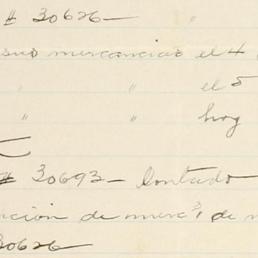 # 30626 —
sus mercancias el 4
" " el 5
" " hoy
# 30693 — Contado
ción de merc³, de m
30626 —